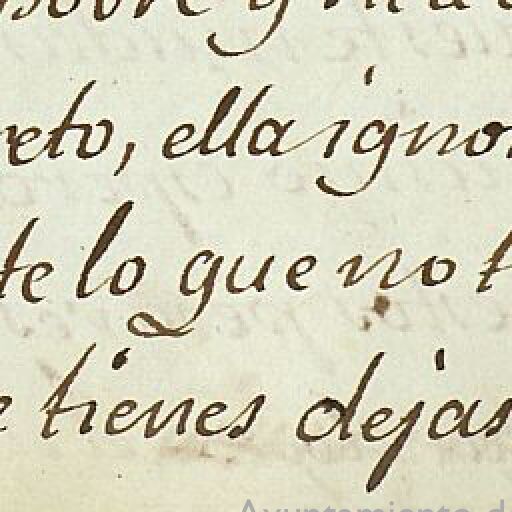 reto, ella igno
te lo que no t
e tienes dejas
Ayuntamiento d